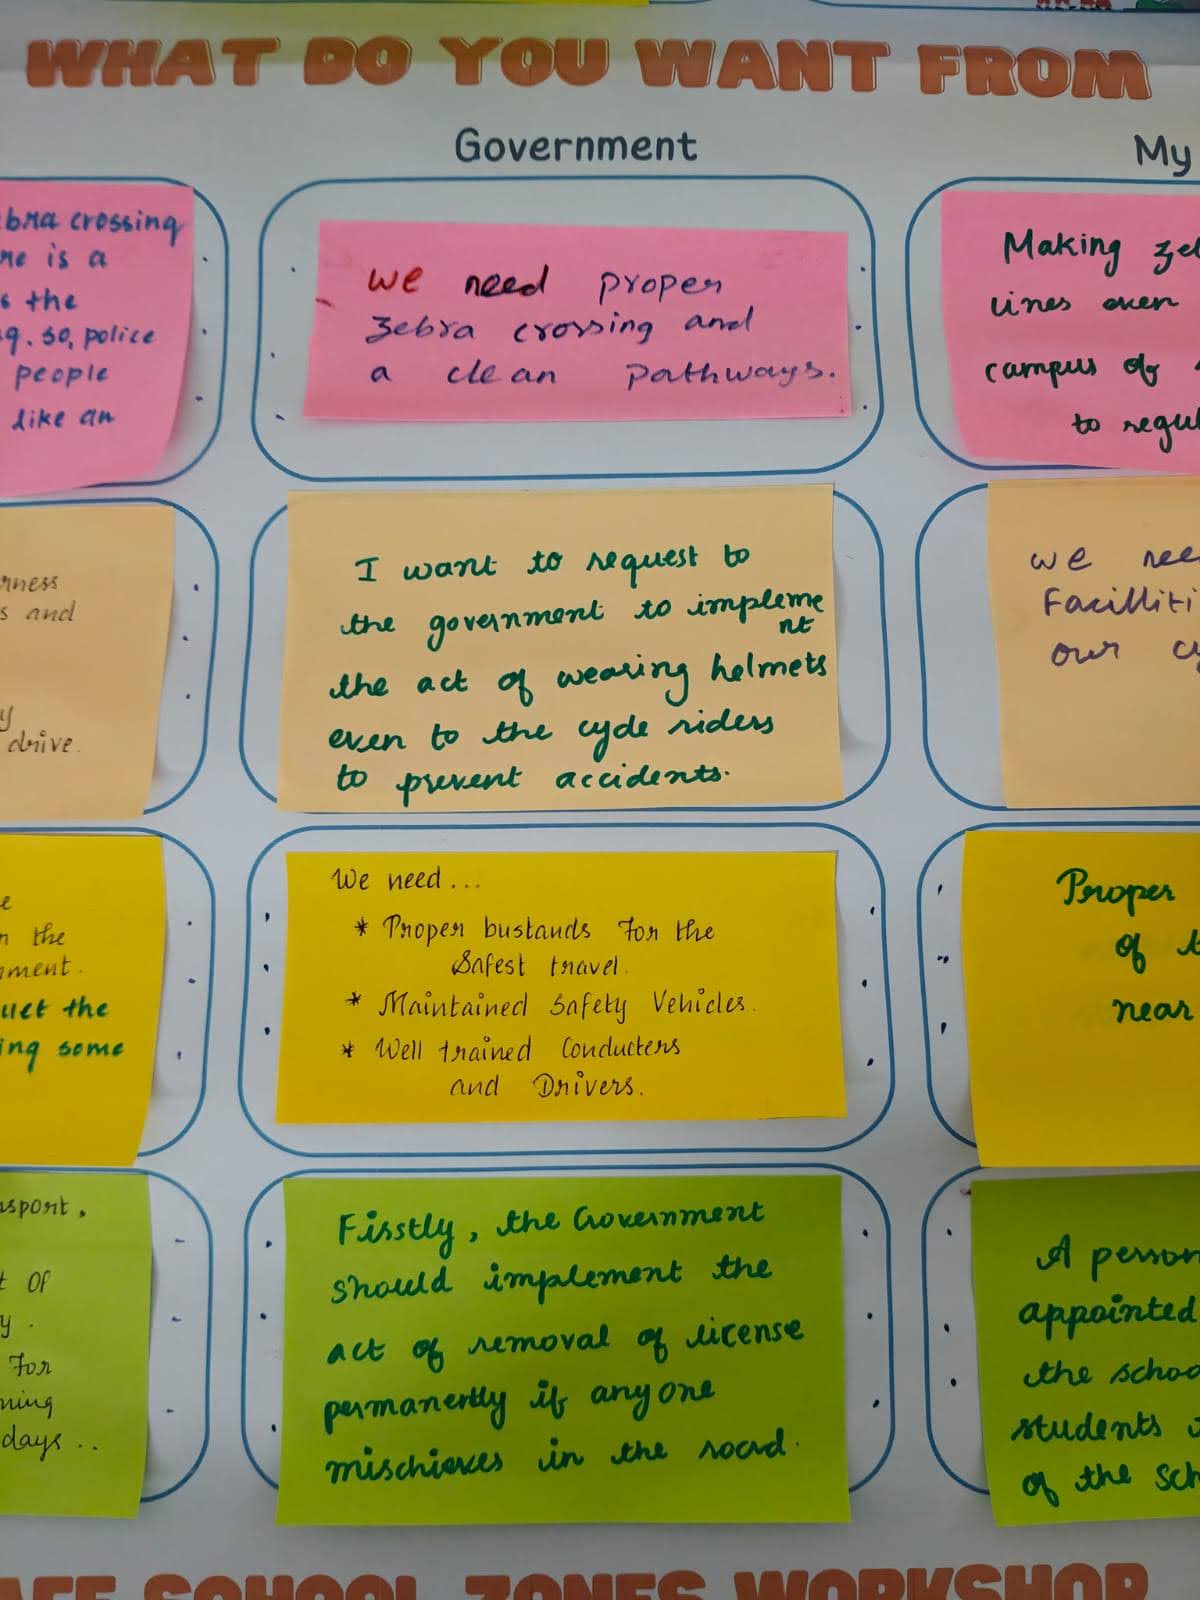 WHAT DO YOU WANT FROM
Government
My
crossing
is a
the
so, police
people
like an
we need proper
zebra crossing and
a clean pathways.
Making
lines even
campus of
to
and
drive.
I want to request to
the government to impleme
nt
the act of wearing helmets
even to the cycle riders
to prevent accidents.
we
our
the
the
some
We need...
* Proper bustands for the
Safest travel.
* Maintained Safety Vehicles.
* Well trained Conducters
and Drivers.
Proper
of
near
of
For
days ..
Fisstly, the Government
should implement the
act of removal of license
permanently if anyone
mischieves in the road.
A person
appointed
the
students
of the
SCHOOL ZONES WORKSHOP